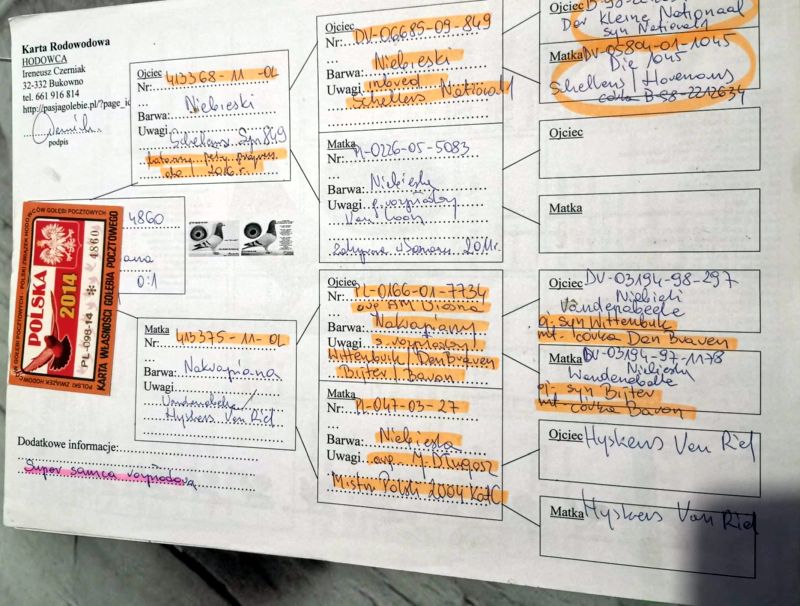 Karta Rodowodowa
HODOWCA
Ireneusz Czerniak
32-332 Bukowno
tel. 661 916 814
http://pasjagolebie.pl/?page_ic
podpis
4860
ana
0:1
HODOWCÓW GOŁĘBI POCZTOWYCH - POLSKI ZWIĄZEK HODOWCÓW
POLSKA
2014
PL-098-14 * 4860
KARTA WŁASNOŚCI GOŁĘBIA POCZTOWEGO
Dodatkowe informacje:
Super samica rozpłodowa
Ojciec
Nr: 413368-11-OL
Barwa: Niebieski
Uwagi Schellens Syn 849
2016 r.
Matka
Nr: 413375-11-OL
Barwa: Nakrapiana
Uwagi
Vandenabeele/
Hyskens Van Riel
Ojciec DV-06685-09-849
Nr:
Niebieski
Barwa:
Uwagi inbred
Schellens National
Matka
Nr: PL-0226-05-5083
Barwa: Niebieska
Uwagi g. rozpłodowy
Van Loon
2011r.
Ojciec
Nr: PL-0166-01-7734
Barwa: Nakrapiany
Uwagi g. rozpłodowy
Wittenbuik/Den Braven
Bijter/Baron
Matka
Nr: PL-047-03-27
Barwa: Niebieska
Uwagi M. Długosz
Mistrz Polski 2004 Kat C
Ojciec
Der Kleine National
syn National
Matka DV-05804-01-1045
Die 1045
Schellens/Hovenans
córka B-98-2212634
Ojciec
Matka
Ojciec DV-03194-98-297
Niebieski
Vandenabeele
oj. syn Wittenbuik
mt. córka Den Braven
Matka DV-03194-97-1178
Niebieska
Vandenabeele
oj. syn Bijter
mt córka Baron
Ojciec Hyskens Van Riel
Matka Hyskens Van Riel